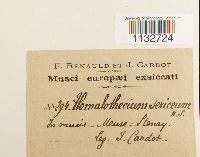 UNIVERSITY OF MINNESOTA
1132724
F. RENAULD ET J. CARDOT
Musci europæi exsiccati
No 94. Homalothecium sericeum
B. S.
In muris. – Meuse – Stenay
Leg. J. Cardot.